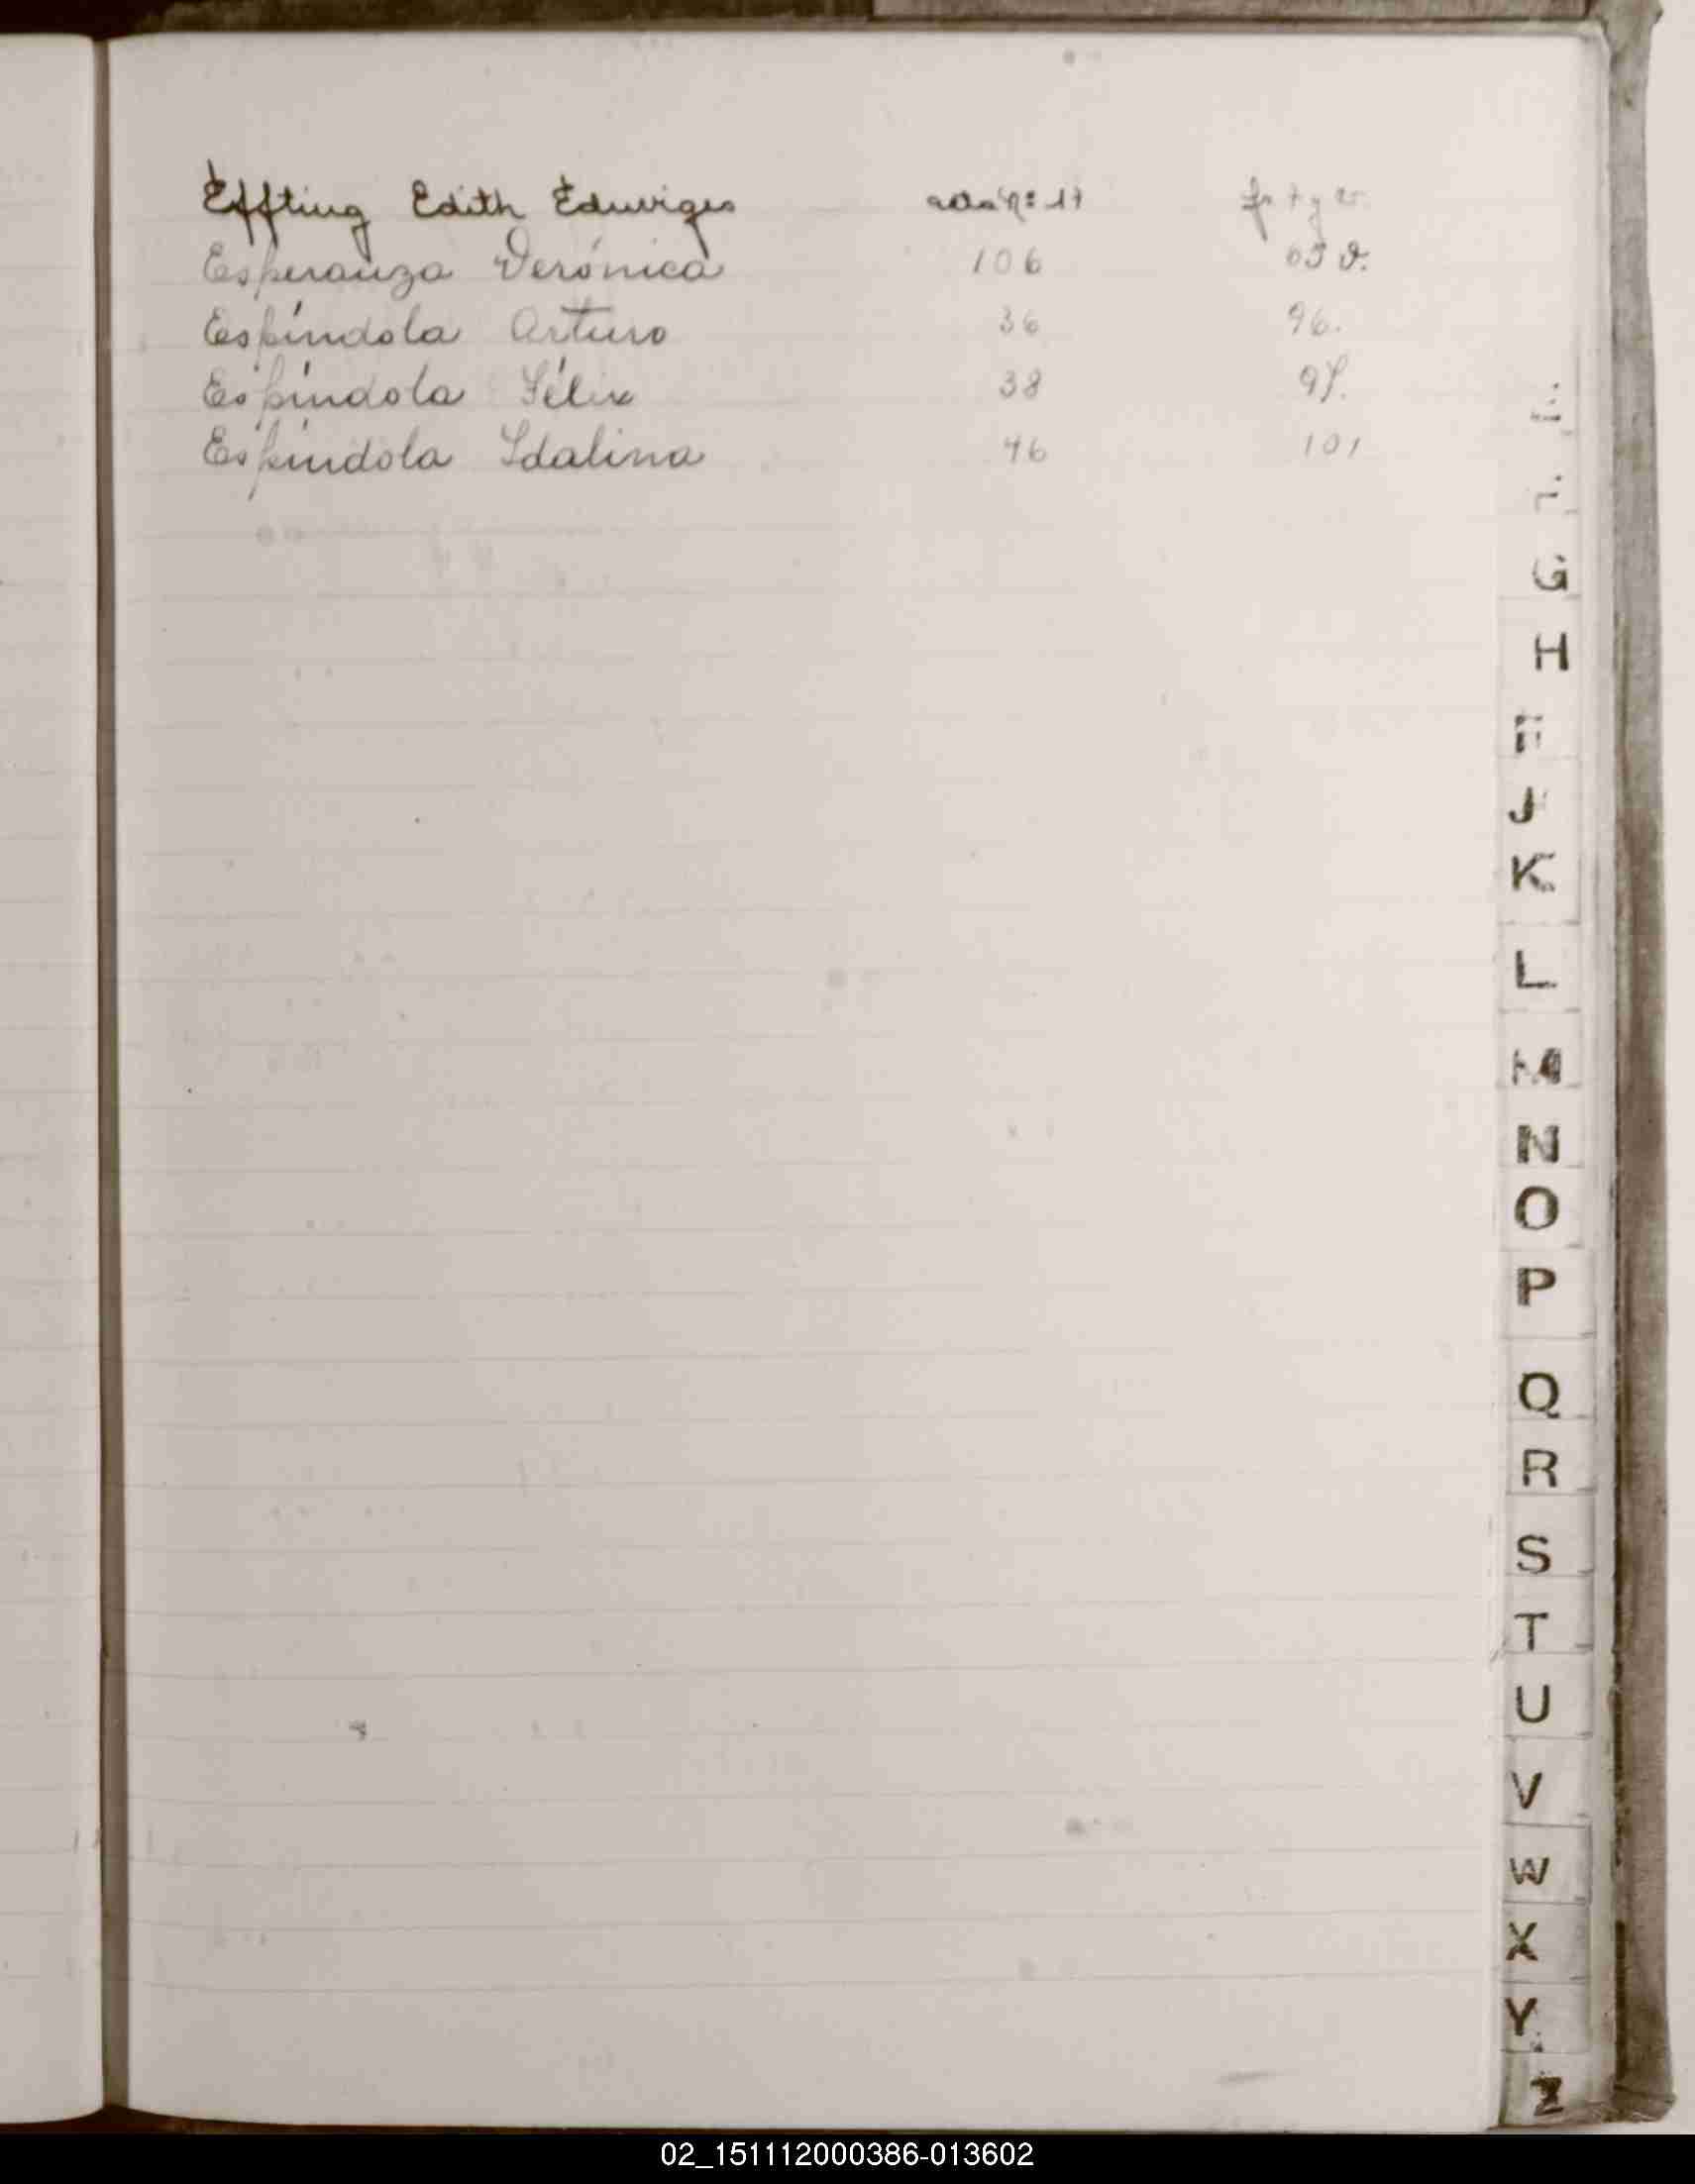 Effting Edith Eduviges acta Nº 17
Esperanza Verónica 106 63 v.
Espíndola Arturo 36 96.
Espíndola Félix 38 97.
Espíndola Idalina 46 101
G
H
J
K
L
M
N
O
P
Q
R
S
T
U
V
W
X
Y
Z
02_151112000386-013602